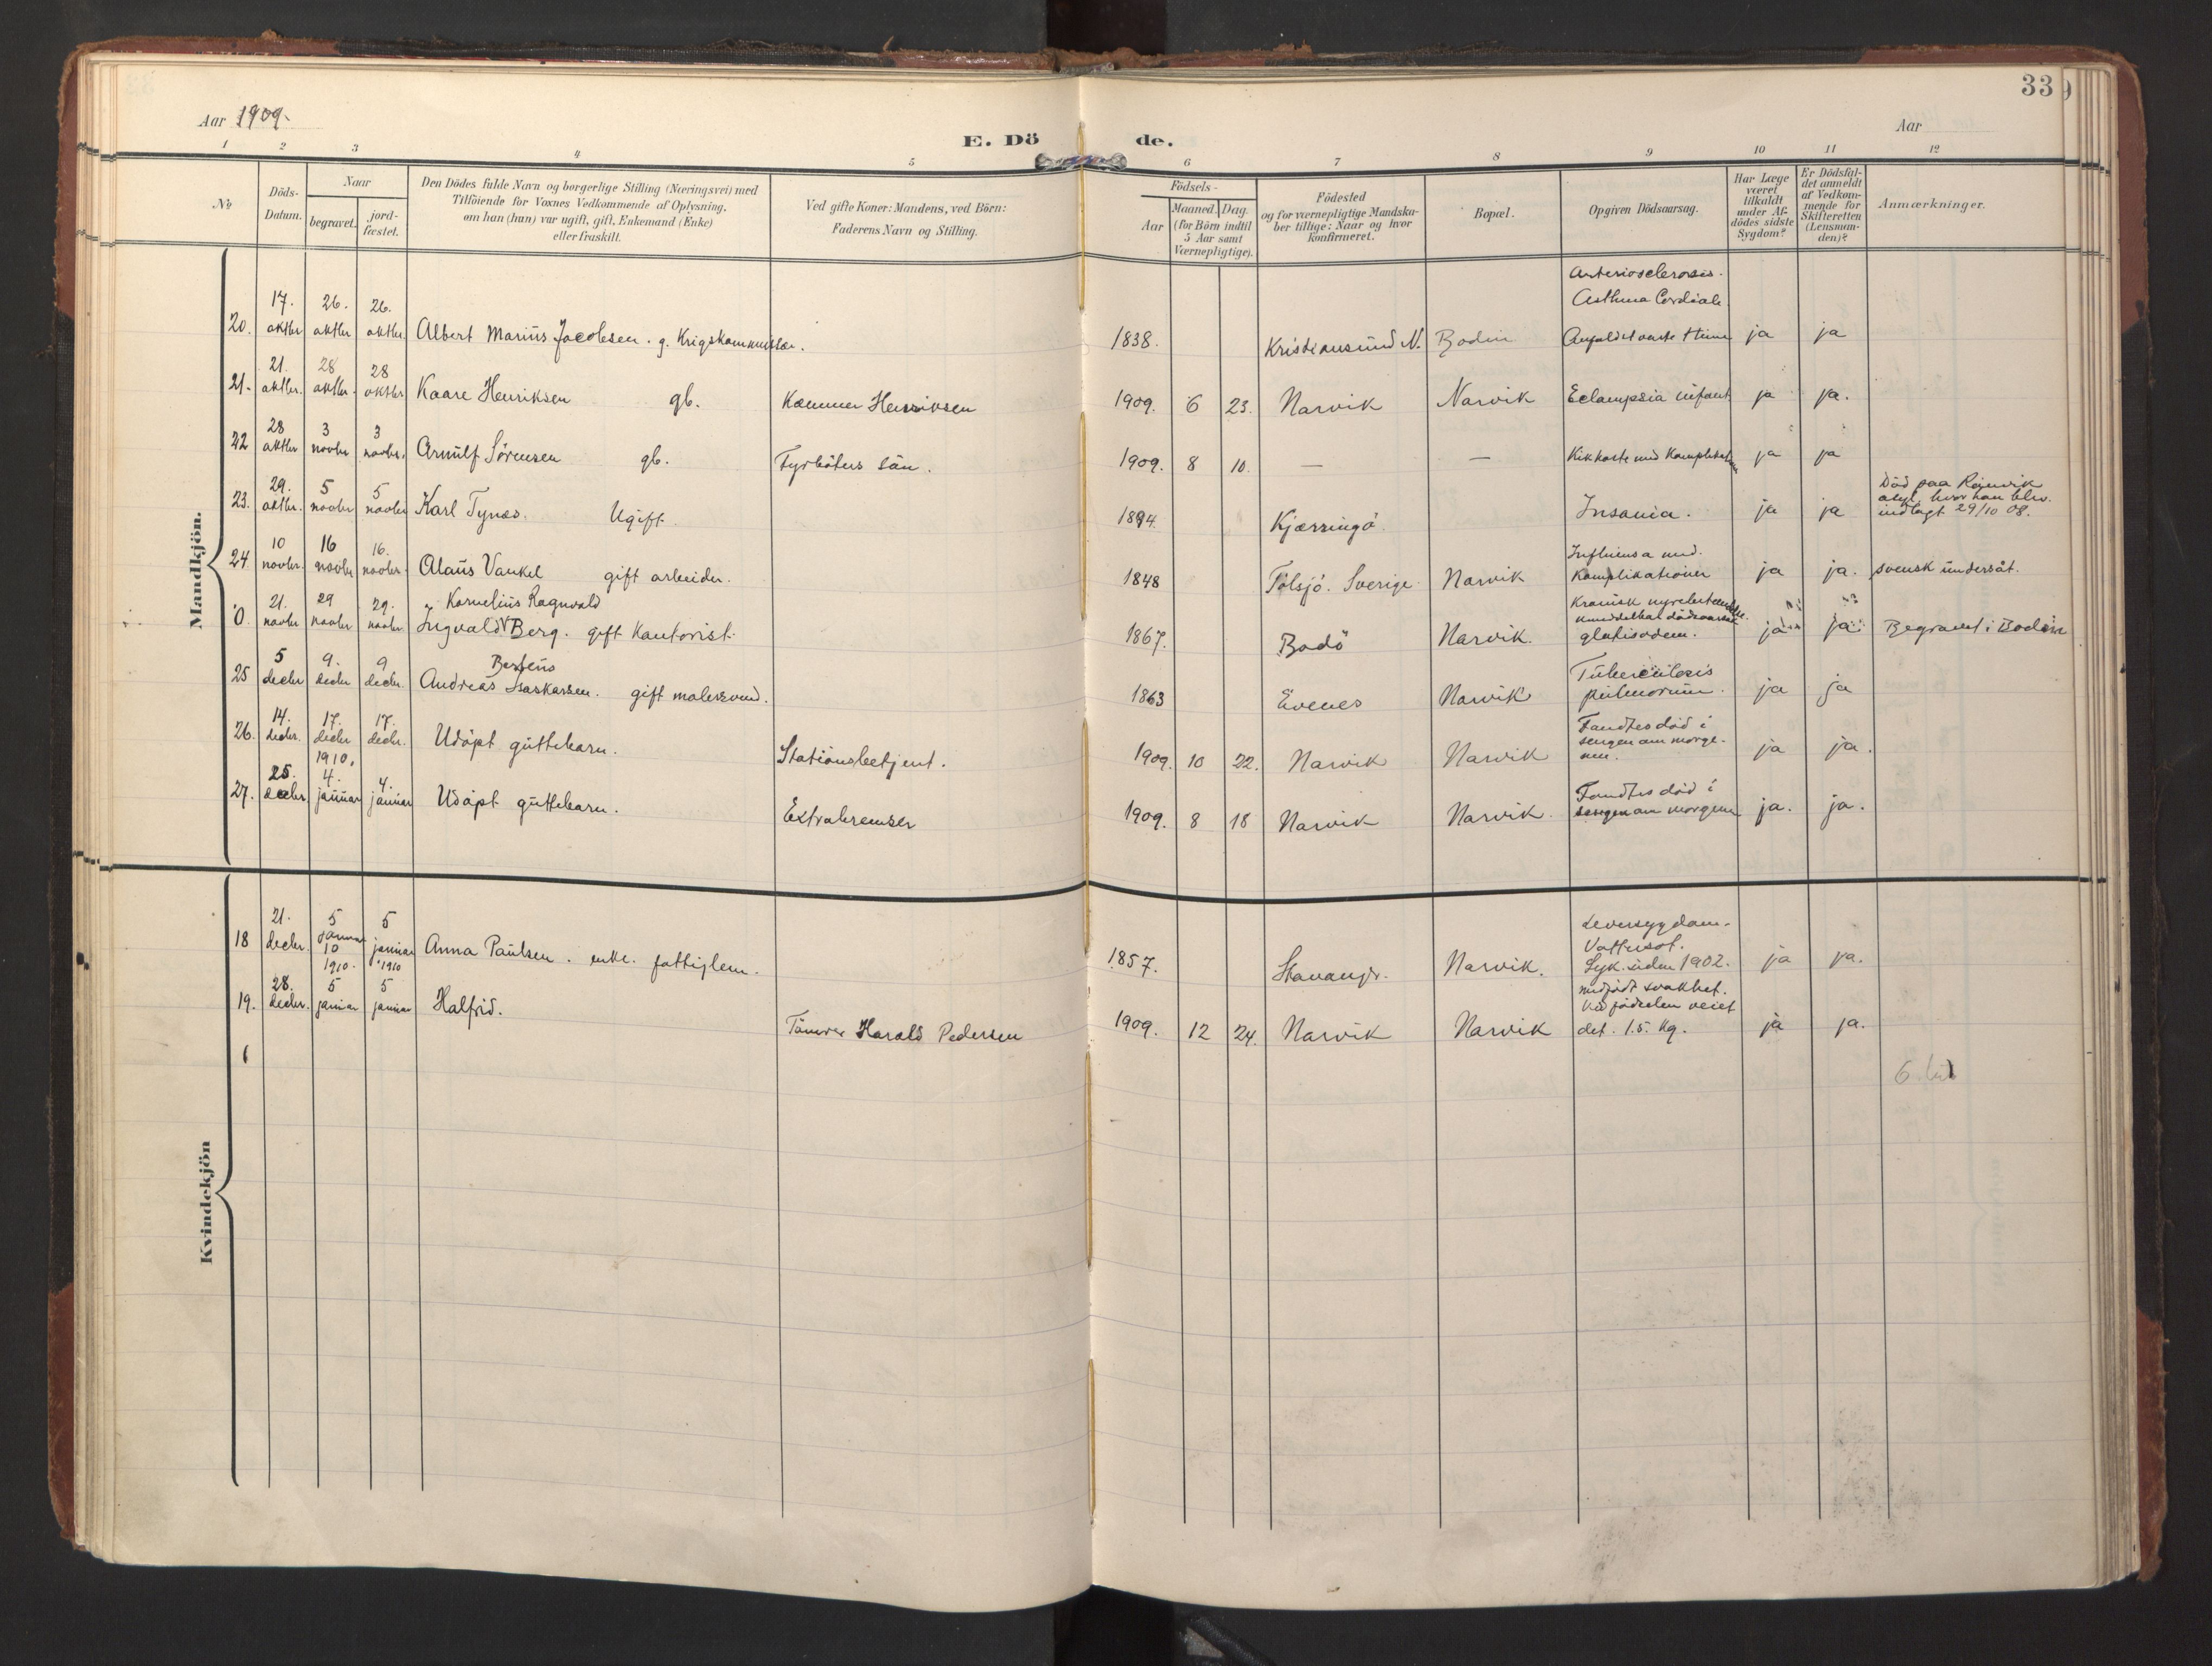 33
Aar 1909.
E. Dö de.
Aar
1 2 3 4 5 6 7 8 9 10 11 12
№
Döds-
Datum.
Naar
begravet.
jord-
fæstet.
Den Dödes fulde Navn og borgerlige Stilling (Næringsvei) med
Tilföiende for Voxnes Vedkommende af Oplysning,
om han (hun) var ugift, gift, Enkemand (Enke)
eller fraskilt.
Ved gifte Koner: Mandens, ved Börn:
Faderens Navn og Stilling.
Födsels-
Aar
Maaned. Dag.
(for Börn indtil
5 Aar samt
Værnepligtige).
Födested
og for værnepligtige Mandska-
ber tillige: Naar og hvor
konfirmeret.
Bopæl.
Opgiven Dödsaarsag.
Har Læge
været
tilkaldt
under Af-
dödes sidste
Sygdom?
Er Dödsfal-
det anmeldt
af Vedkom-
mende for
Skifteretten
(Lensman-
den)?
Anmærkninger.
Mandkjön.
Arteriosclerosis.
17. 26. 26. Asthma Cordiale
20. oktbr oktbr oktbr Albert Marius Jacobsen. g. Krigskommissær. 1838. Kristiansund N. Bodin ja ja
21. 28 28
21. oktbr. oktbr. oktbr Kaare Henriksen gb. Kæmner Henriksen 1909. 6 23. Narvik Narvik Eclampsia infant ja ja.
28 3 3
22 oktbr novbr novbr. Arnulf Sörensen gb. Fyrböters sön. 1909. 8 10. — — Kikhoste med Komplikation ja ja
29. 5 5 Död paa Rönvik
23. oktbr. novbr novbr Karl Tynæs. Ugift. 1894. Kjærringö. Insania. ja ja asyl, hvor han blev
indlagt 29/10 08.
10 16 16. Influensa med
24 novbr. novbr novbr. Olaus Vankel gift arbeider. 1848 Tölsjö. Sverige Narvik Komplikationer ja ja. svensk undersåt.
21. 29 29. Kornelius Ragnvald Kronisk nyrebetændelse.
0. novbr novbr novbr. Ingvald Berg. gift Kantorist. 1867. Bodö Narvik. umiddelbar dödsaarsak glotisödem. ja ja Begravet i Bodin
5 9. 9 Berteus Tuberculosis
25 decbr decbr decbr. Andreas Isaksen. gift malersvend. 1863 Evenes Narvik pulmorum. ja ja
14. 17. 17. Fandtes död i
26. decbr. decbr decbr. Udöpt guttebarn. Stationsbetjent. 1909. 10 22. Narvik Narvik sengen om morge-
nen. ja ja.
1910.
25. 4. 4. Fandtes död i
27. decbr januar januar Udöpt guttebarn. Extrabremser 1909. 8 18 Narvik Narvik. sengen om morgenen ja. ja.
Kvindekjön
21. 5 5 Leversygdom.
januar Vattersot.
18 decbr. 10 januar Anna Paulsen. enke. fattiglem. 1857. Stavanger. Narvik. Syk siden 1902. ja ja.
1910. 1910
28. 5 5 medfödt svakhet.
Ved födselen veiet
19. decbr. januar januar Halfrid. Tömrer Harald Pedersen 1909. 12 24. Narvik Narvik det. 1.5. Kg. ja ja.